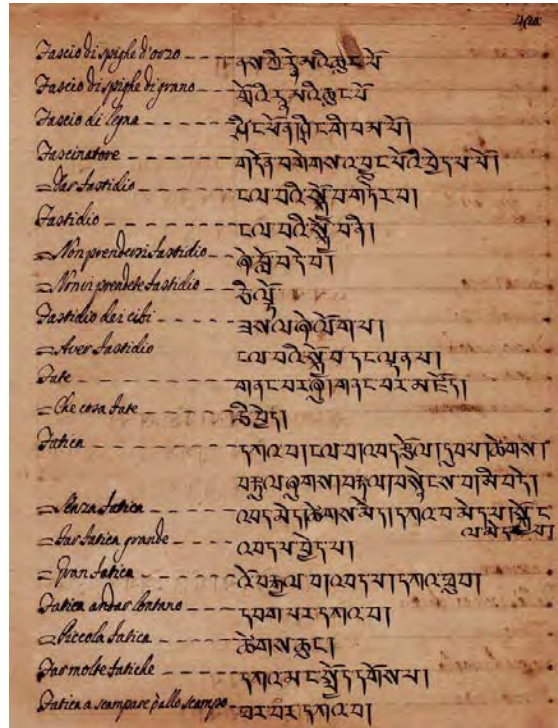 Fascio di spighe d'orzo - - - ནས་ཀྱི་རྙེ་མའི་ཆུང་པོ
Fascio di spighe di grano - - - གྲོའི་རྙེ་མའི་ཆུང་པོ
Fascio di legna - - - ཤིང་
Fascinatore - - -
= Dar fastidio - - - ངལ་བའི་སྐྱོ་བ་གཏེར་བ།
Fastidio - - - ངལ་བའི་སྐྱོ་བ་ནི།
= Non prendersi fastidio - - - བློ་བདེ་བོ།
= Non vi prendete fastidio - - -
Fastidio dei cibi - - - ཟས་ལ་ཞེ་ལོག་པ།
= Aver fastidio - - - ངལ་བའི་སྐྱོ་བ་དང་ལྡན་པ།
Fate - - - གནང་བར་ཞུ། གནང་བར་མ་ཛོད།
= Che cosa fate - - - ཅི་བྱེད།
Fatica - - - དཀའ་བ། ངལ་བ། འབད་རྩོལ། དུབ་པ། ཚེགས།
བརྟུལ་ཞུགས། བརྟུལ། མི་བདེ།
= Senza fatica - - - འབད་མེད། ཚེགས་མེད། དཀའ་བ་མེད་པ།
= Far fatica grande - - - འབད་པ་བྱེད་པ།
= Gran fatica - - - འོ་བརྒྱལ་བ། འབད་པ། དཀའ་ཐུབ།
Fatica andar lontano - - - དཀའ་བ།
= Piccola fatica - - - ཚེགས་ཆུང།
Far molte fatiche - - - དཀའ་མང་སྤྱོད་དགོས་པ།
Fatica a scampare è allo scampo - - - ཐར་བར་དཀའ་བ།